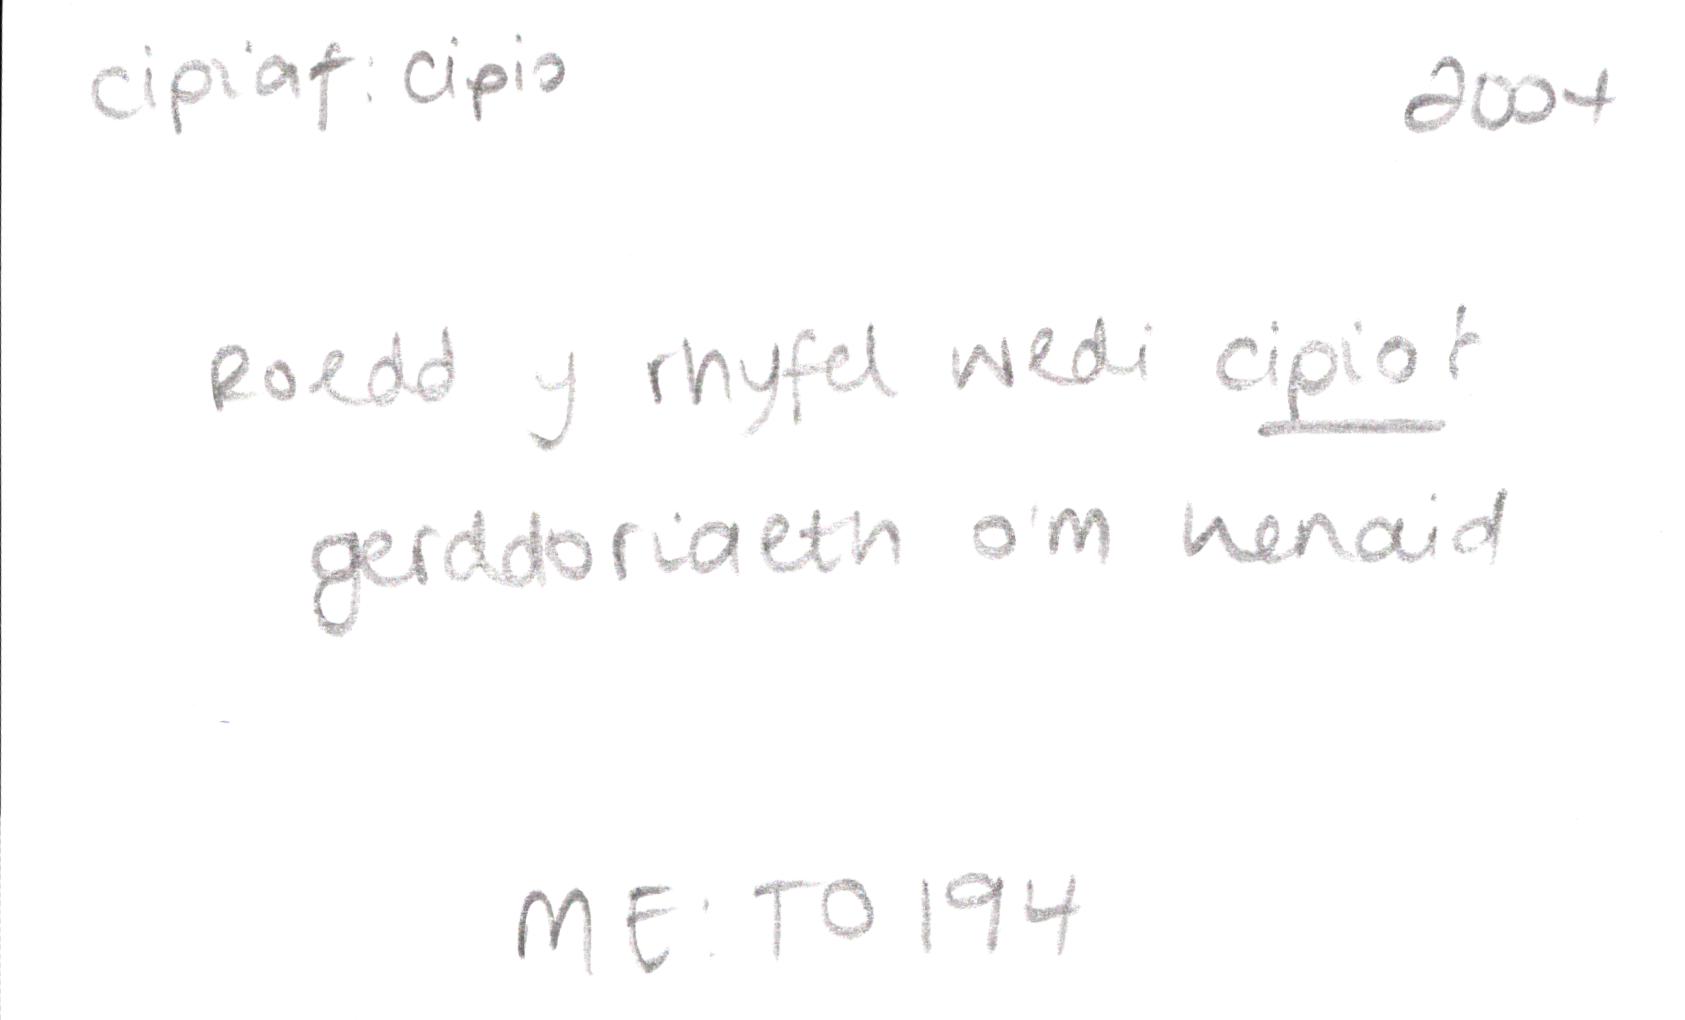 cipiaf: cipio 2004
Roedd y rhyfel wedi cipio'r
gerddoriaeth o'm henaid
ME: TO 194